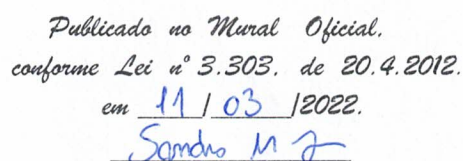 Publicado no Mural Oficial,
conforme Lei nº 3.303, de 20.4.2012.
em 11 / 03 /2022.
Sandro M